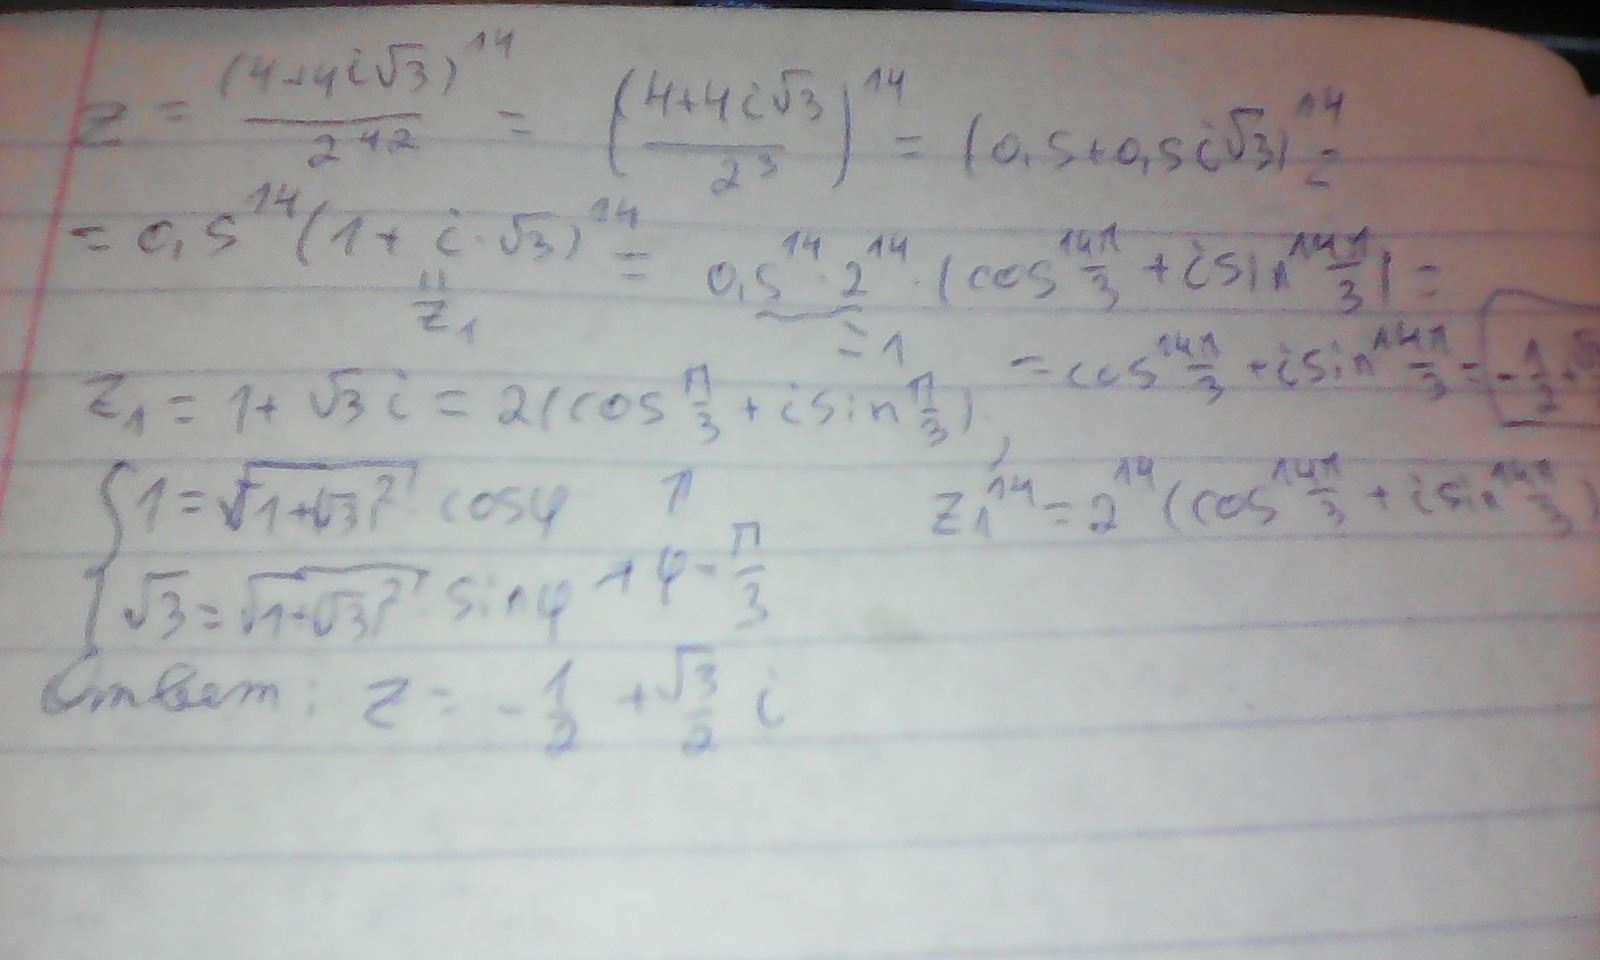 z = (4+4i√3)^14 / 2^42 = ((4+4i√3) / 2^3)^14 = (0,5+0,5i√3)^14 =
= 0,5^14 (1 + i·√3)^14 = 0,5^14 · 2^14 · (cos 14π/3 + i sin 14π/3) =
= z1
= 1
= cos 14π/3 + i sin 14π/3 = - 1/2 + √3
z1 = 1 + √3 i = 2(cos π/3 + i sin π/3),
z1^14 = 2^14 (cos 14π/3 + i sin 14π/3)
{ 1 = √(1+√3²) · cosφ ↑
√3 = √(1+√3²) · sinφ → φ = π/3
Ответ: z = - 1/2 + √3/2 i